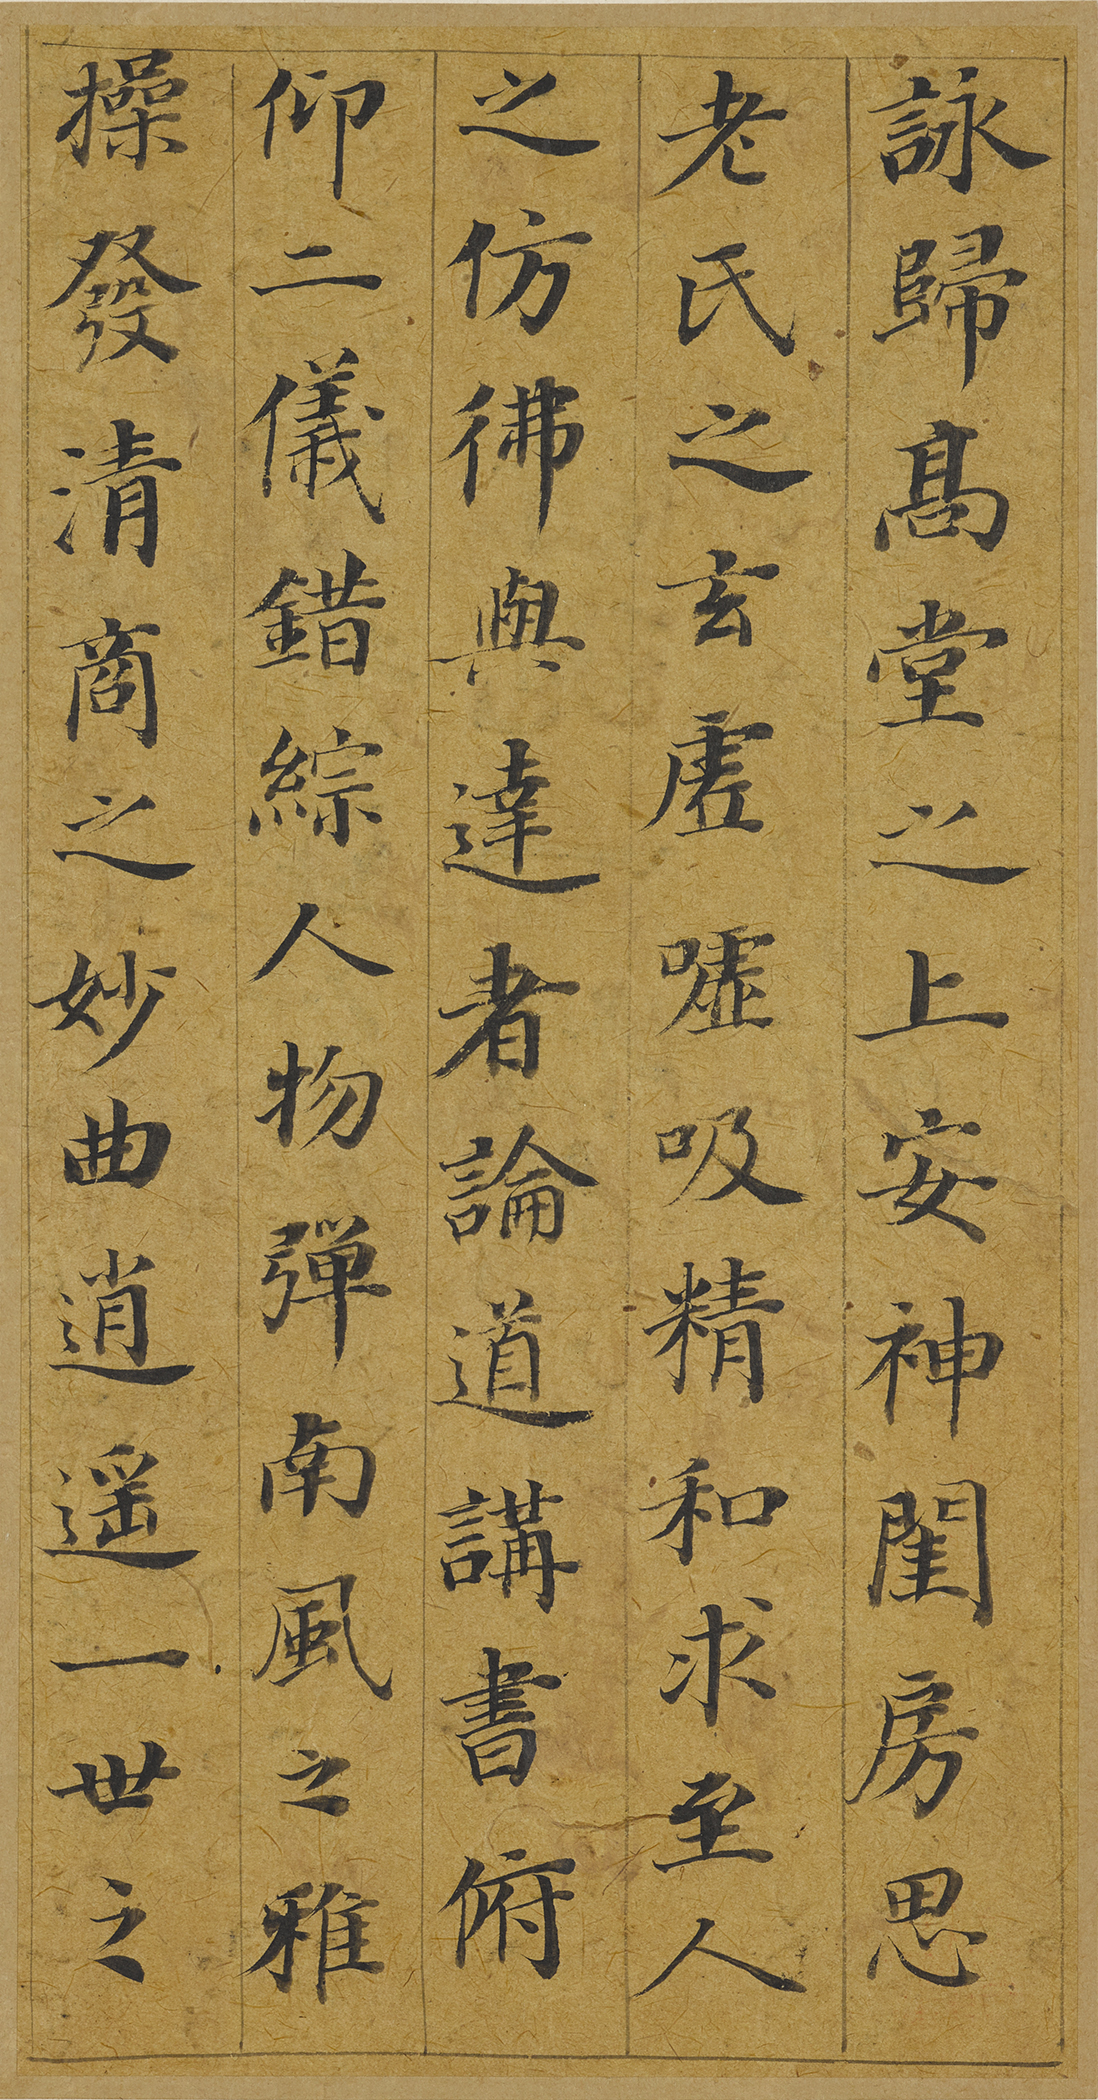 詠歸高堂之上安神閨房思
老氏之玄虛噓吸精和求至人
之仿彿與達者論道講書俯
仰二儀錯綜人物彈南風之雅
操發清商之妙曲逍遙一世之